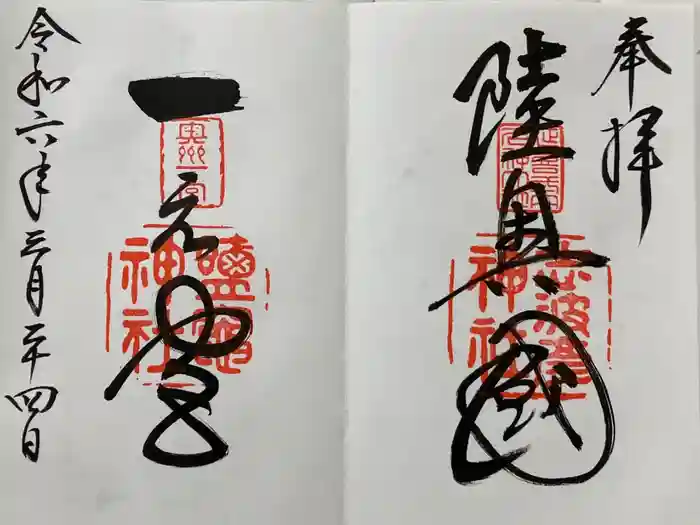 奉拝
陸奥國
志波彦神社
一之宮
奥州一宮
鹽竈神社
令和六年三月二十四日